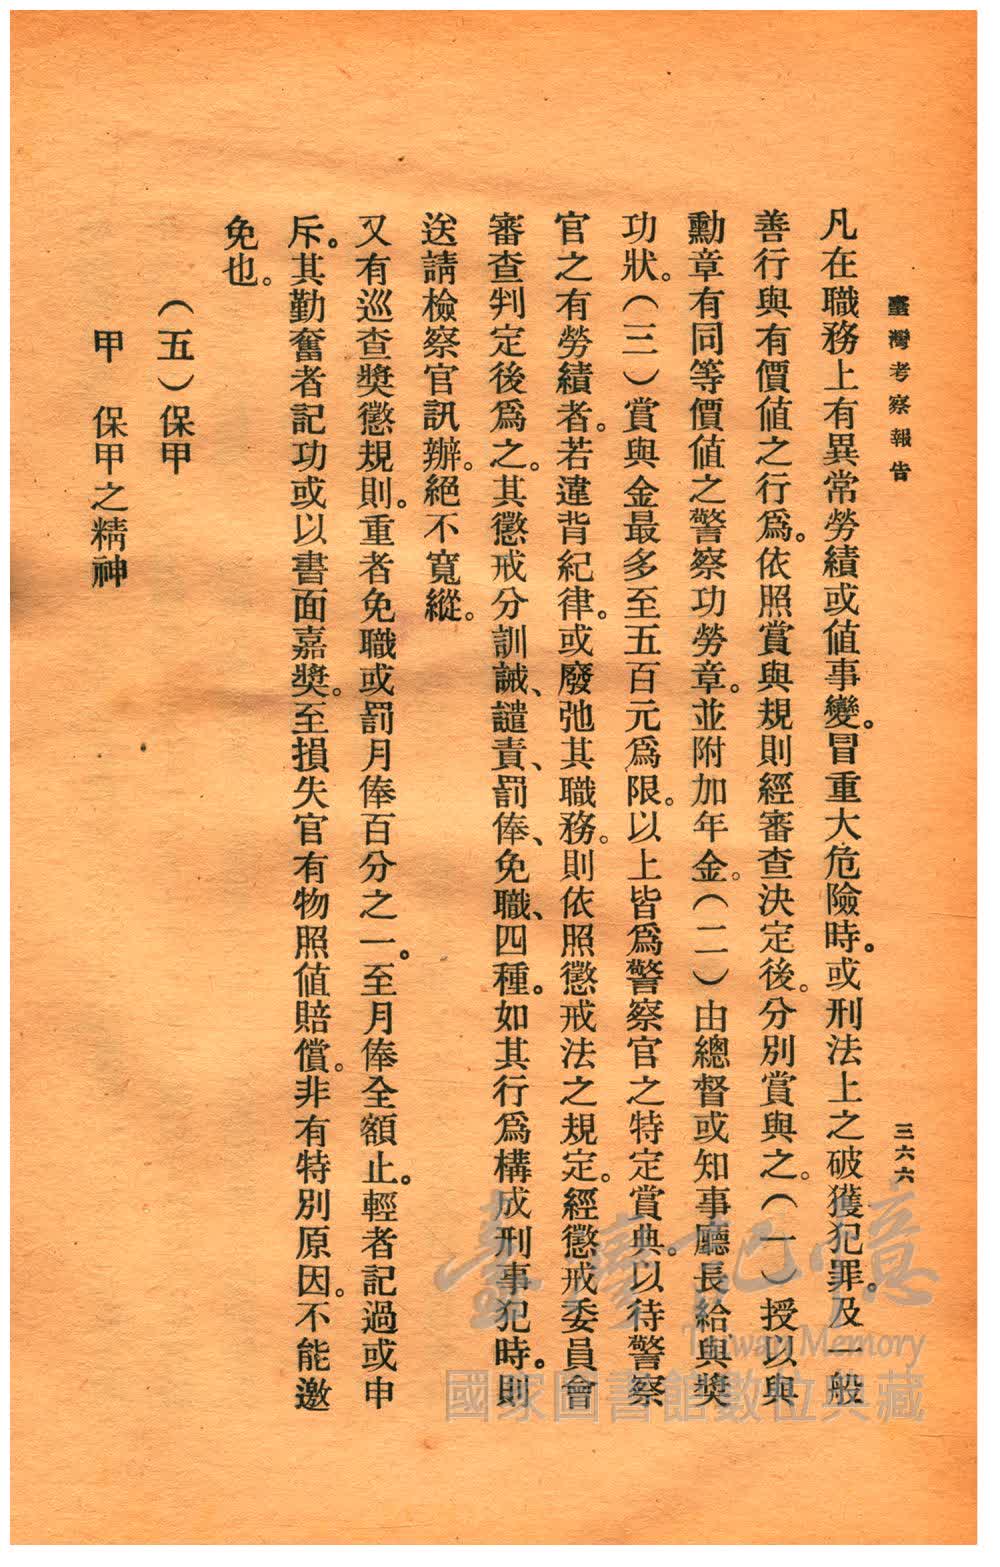 臺灣考察報告
三六六
凡在職務上有異常勞績或值事變。冒重大危險時。或刑法上之破獲犯罪。及一般
善行與有價值之行爲。依照賞與規則經審查決定後。分別賞與之。(一)授以與
勳章有同等價値之警察功勞章。並附加年金。(二)由總督或知事廳長給與獎
功狀。(三)賞與金最多至五百元爲限。以上皆爲警察官之特定賞典。以待警察
官之有勞績者。若違背紀律。或廢弛其職務。則依照懲戒法之規定。經懲戒委員會
審查判定後爲之。其懲戒分訓誡、譴責、罰俸、免職、四種。如其行爲構成刑事犯時。則
送請檢察官訊辦。絕不寬縱。
又有巡查獎懲規則。重者免職或罰月俸百分之一。至月俸全額止。輕者記過或申
斥。其勤奮者記功或以書面嘉獎。至損失官有物照值賠償。非有特別原因。不能邀
免也。
(五)保甲
甲 保甲之精神
臺灣記憶
Taiwan Memory
國家圖書館數位典藏